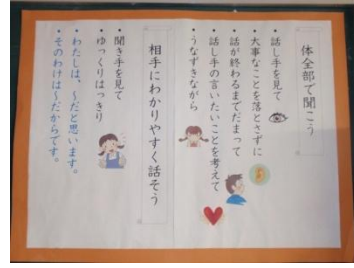 体全部で聞こう
・話し手を見て
・大事なことを落とさずに
・話が終わるまでだまって
・話し手の言いたいことを考えて
・うなずきながら
相手にわかりやすく話そう
・聞き手を見て
・ゆっくりはっきり
・わたしは、～だと思います。
・そのわけは～だからです。